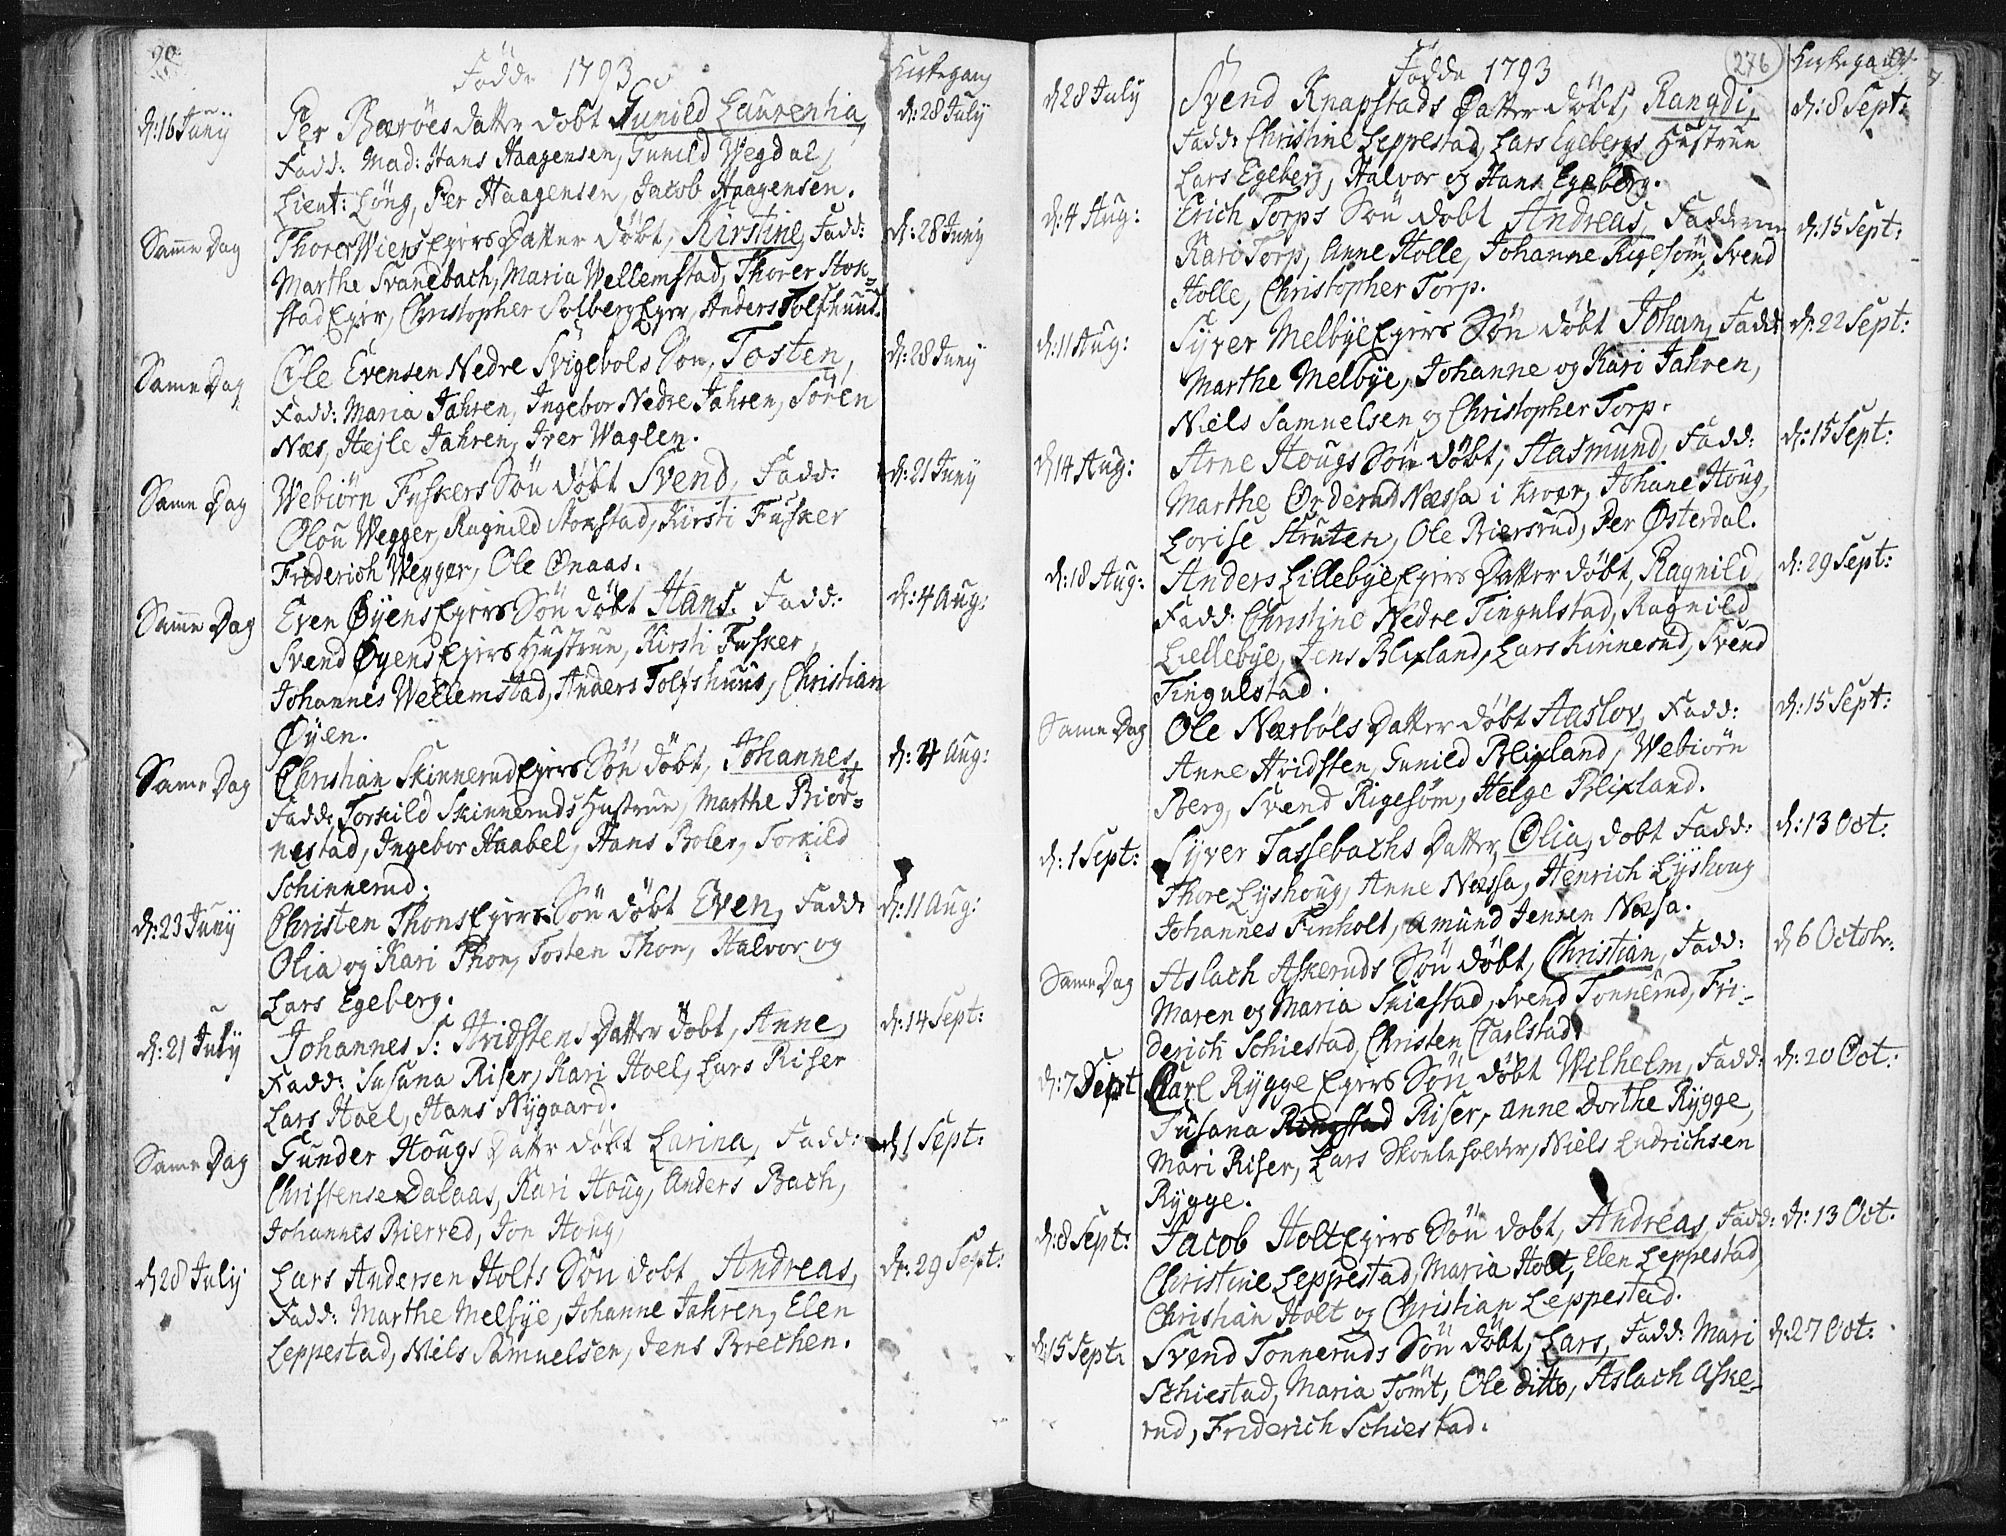 90.
Födde 1793
Kirkegang
d: 16 Junÿ
Per Bæröes datter döbt Gunild Laurentia,
d: 28 Julÿ
Fadd: Mad: Hans Haagensen, Gunild Wegdal,
Lieut: Löng, Per Haagensen, Jacob Haagensen.
Samme Dag
Thorer Wiens Egirs Datter döbt, Kirstine, Fadd:
d: 28 Junÿ
Marthe Svanebach, Maria Wellemstad, Thorer Stok=
stad Egir, Christopher Solberg Egir, Anders Tolfshuus.
Same Dag
Ole Evensen Nedre Svigebols Sön, Tosten,
d: 28 Junÿ
Fadd: Maria Jahren, Ingebor Nedre Jahren, Sören
Næs, Hejle Jahren, Iver Waglen.
Same Dag
Webiörn Fuskers Sön döbt Svend, Fadd:
d: 21 Junÿ
Olou Wegger, Ragnild Stokstad, Kirsti Fusker
Friderich Wegger, Ole Onaas.
Samme Dag
Even Øyens Egirs Sön döbt Hans. Fadd:
d: 4 Aug:
Svend Øyens Egirs Hustrue, Kirsti Fusker,
Johannes Wellemstad, Anders Tolfshuus, Christian
Øyen.
Same Dag
Christian Skinnerud Egirs Sön döbt, Johannes,
d: 4 Aug:
Fadd: Torkild Skinneruds Hustrue, Marthe Biör=
nestad, Ingebor Haabel, Hans Boler, Torkild
Schinnerud.
d: 23 Junÿ
Christen Thons Egirs Sön döbt Even, Fadd:
d: 11 Aug:
Olia og Kari Thon, Tosten Thon, Halvor og
Lars Egeberg.
d: 21 Julÿ
Johannes S: Hvidstens Datter döbt, Anne,
d: 14 Sept:
Fadd: Susana Riser, Kari Hoel, Lars Riser
Lars Hoel, Hans Nÿgaard.
Same Dag
Gunder Hougs Datter döbt Larina, Fadd:
d 1 Sept:
Christense Dalaas, Kari Houg, Anders Bach,
Johannes Bierred, Jon Houg,
d 28 Julÿ
Lars Andersen Holts Sön döbt Andreas,
d: 29 Sept:
Fadd: Marthe Melbÿe, Johanne Jahren, Elen
Leppestad, Niels Samuelsen, Jens Brechen.
Födde 1793
276
Kirkegang
91.
d 28 Julÿ
Svend Knapstads Datter döbt, Rangdi,
d: 8 Sept:
Fadd: Christine Leppestad, Lars Egebergs Hustrue
Lars Egeberg, Halvor og Hans Egeberg.
d: 4 Aug:
Erich Torps Sön döbt Andreas, Fadderne
d: 15 Sept:
Kari Torp, Anne Holle, Johanne Rigesöm, Svend
Holle, Christopher Torp.
d: 11 Aug:
Sÿver Melbÿe Egirs Sön döbt Johan, Fadd:
d: 22 Sept:
Marthe Melbÿe, Johanne og Kari Jahren,
Niels Samuelsen og Christopher Torp.
d 14 Aug:
Arne Hougs Sön döbt, Aasmund, Fadd:
d: 15 Sept:
Marthe Orderud Næssa i Kroer, Johane Houg,
Lovise Struten, Ole Biersrud, Per Østerdal.
d: 18 Aug:
Anders Lillebÿe Egirs Datter döbt, Ragnild
d: 29 Sept:
Fadd: Christine Nedre Tingulstad, Ragnild
Lillebÿe, Jens Blixland, Lars Kinnerud, Svend
Tingulstad.
Same Dag
Ole Nærböls Datter döbt Aaslov, Fadd:
d: 15 Sept:
Anne Hvidsten, Gunild Blixland, Webiörn
Berg, Svend Rigesöm, Helge Blixland.
d: 1 Sept:
Sÿver Tassebachs Datter, Olia, döbt Fadd:
d: 13 Oct:
Thore Lÿshoug, Anne Næssa, Henrich Lÿshoug
Johannes Finholt, Amund Jensen Næsa.
Same Dag
Aslach Askeruds Sön döbt, Christian, Fadd:
d 6 Octobr:
Maren og Maria Skiestad, Svend Tonnerud, Fri=
derich Schiestad, Christen Carlstad.
d: 7 Sept
Karl Rÿgge Egirs Sön döbt Wilhelm, Fadd:
d: 20 Oct:
Susana Ringstad Riser, Anne Dorthe Rÿgge,
Mari Riser, Lars Skoleholder, Niels Endrichsen
Rÿgge.
d: 8 Sept:
Jacob Holt Egirs Sön döbt, Andreas, Fadd:
d: 13 Oct.
Christine Leppestad, Maria Holt, Elen Leppestad,
Christian Holt og Christian Leppestad.
d: 15 Sept:
Svend Tonneruds Sön döbt, Lars, Fadd: Mari
d: 27 Oct:
Schiestad, Maria Tomt, Ole ditto, Aslach Aske=
rud, Friderich Schiestad.